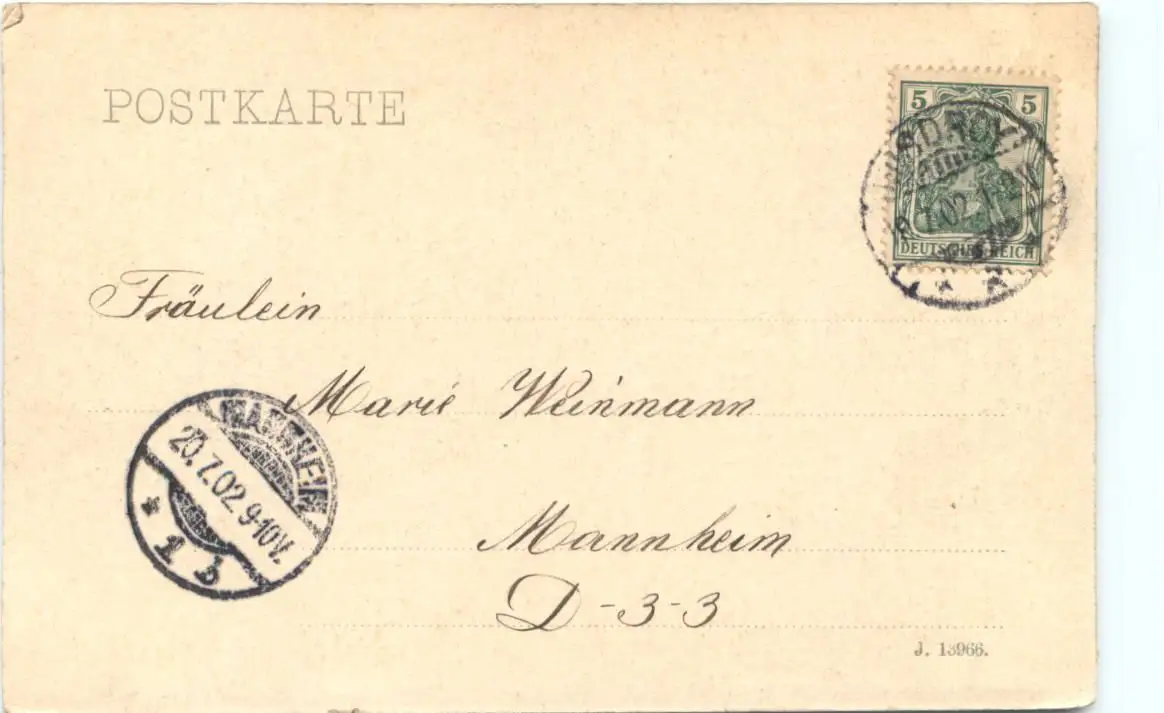 POSTKARTE
5 5
DEUTSCHES REICH
Fräulein
Marie Weinmann
MANNHEIM
20.7.02 9-10V.
* 1 b
Mannheim
D-3-3
J. 13966.